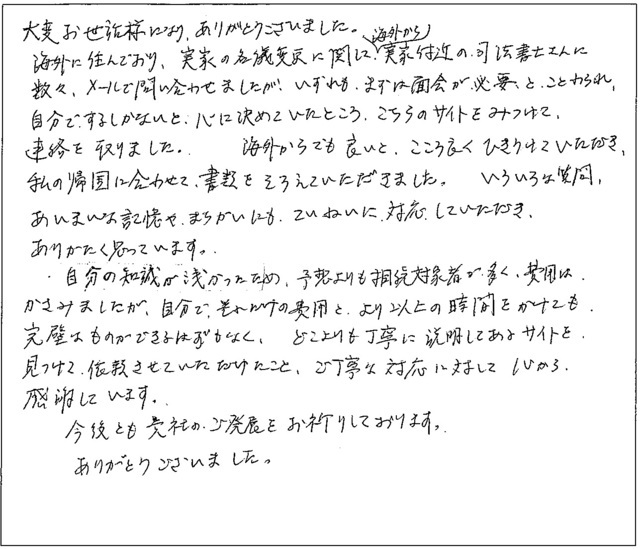 大変お世話様になり、ありがとうございました。
海外に住んでおり、実家の名義変更に関して、海外から実家付近の司法書士さんに
数々、メールで問い合わせましたが、いずれも、まずは面会が必要と、ことわられ、
自分でするしかないと、心に決めていたところ、こちらのサイトをみつけて、
連絡を取りました。 海外からでも良いと、こころ良くひきうけていただき、
私の帰国に合わせて、書類をそろえていただきました。 いろいろな質問、
あいまいな記憶や、まちがいにも、ていねいに対応していただき、
ありがたく思っています。
・自分の知識が浅かったため、予想よりも相続対象者が多く、費用は
かさみましたが、自分で、それだけの費用と、より以上の時間をかけても、
完璧なものができるはずもなく、どこよりも丁寧に説明してあるサイトを
見つけて、依頼させていただけたこと、ご丁寧な対応に対して心から
感謝しています。
今後とも貴社のご発展をお祈りしております。
ありがとうございました。